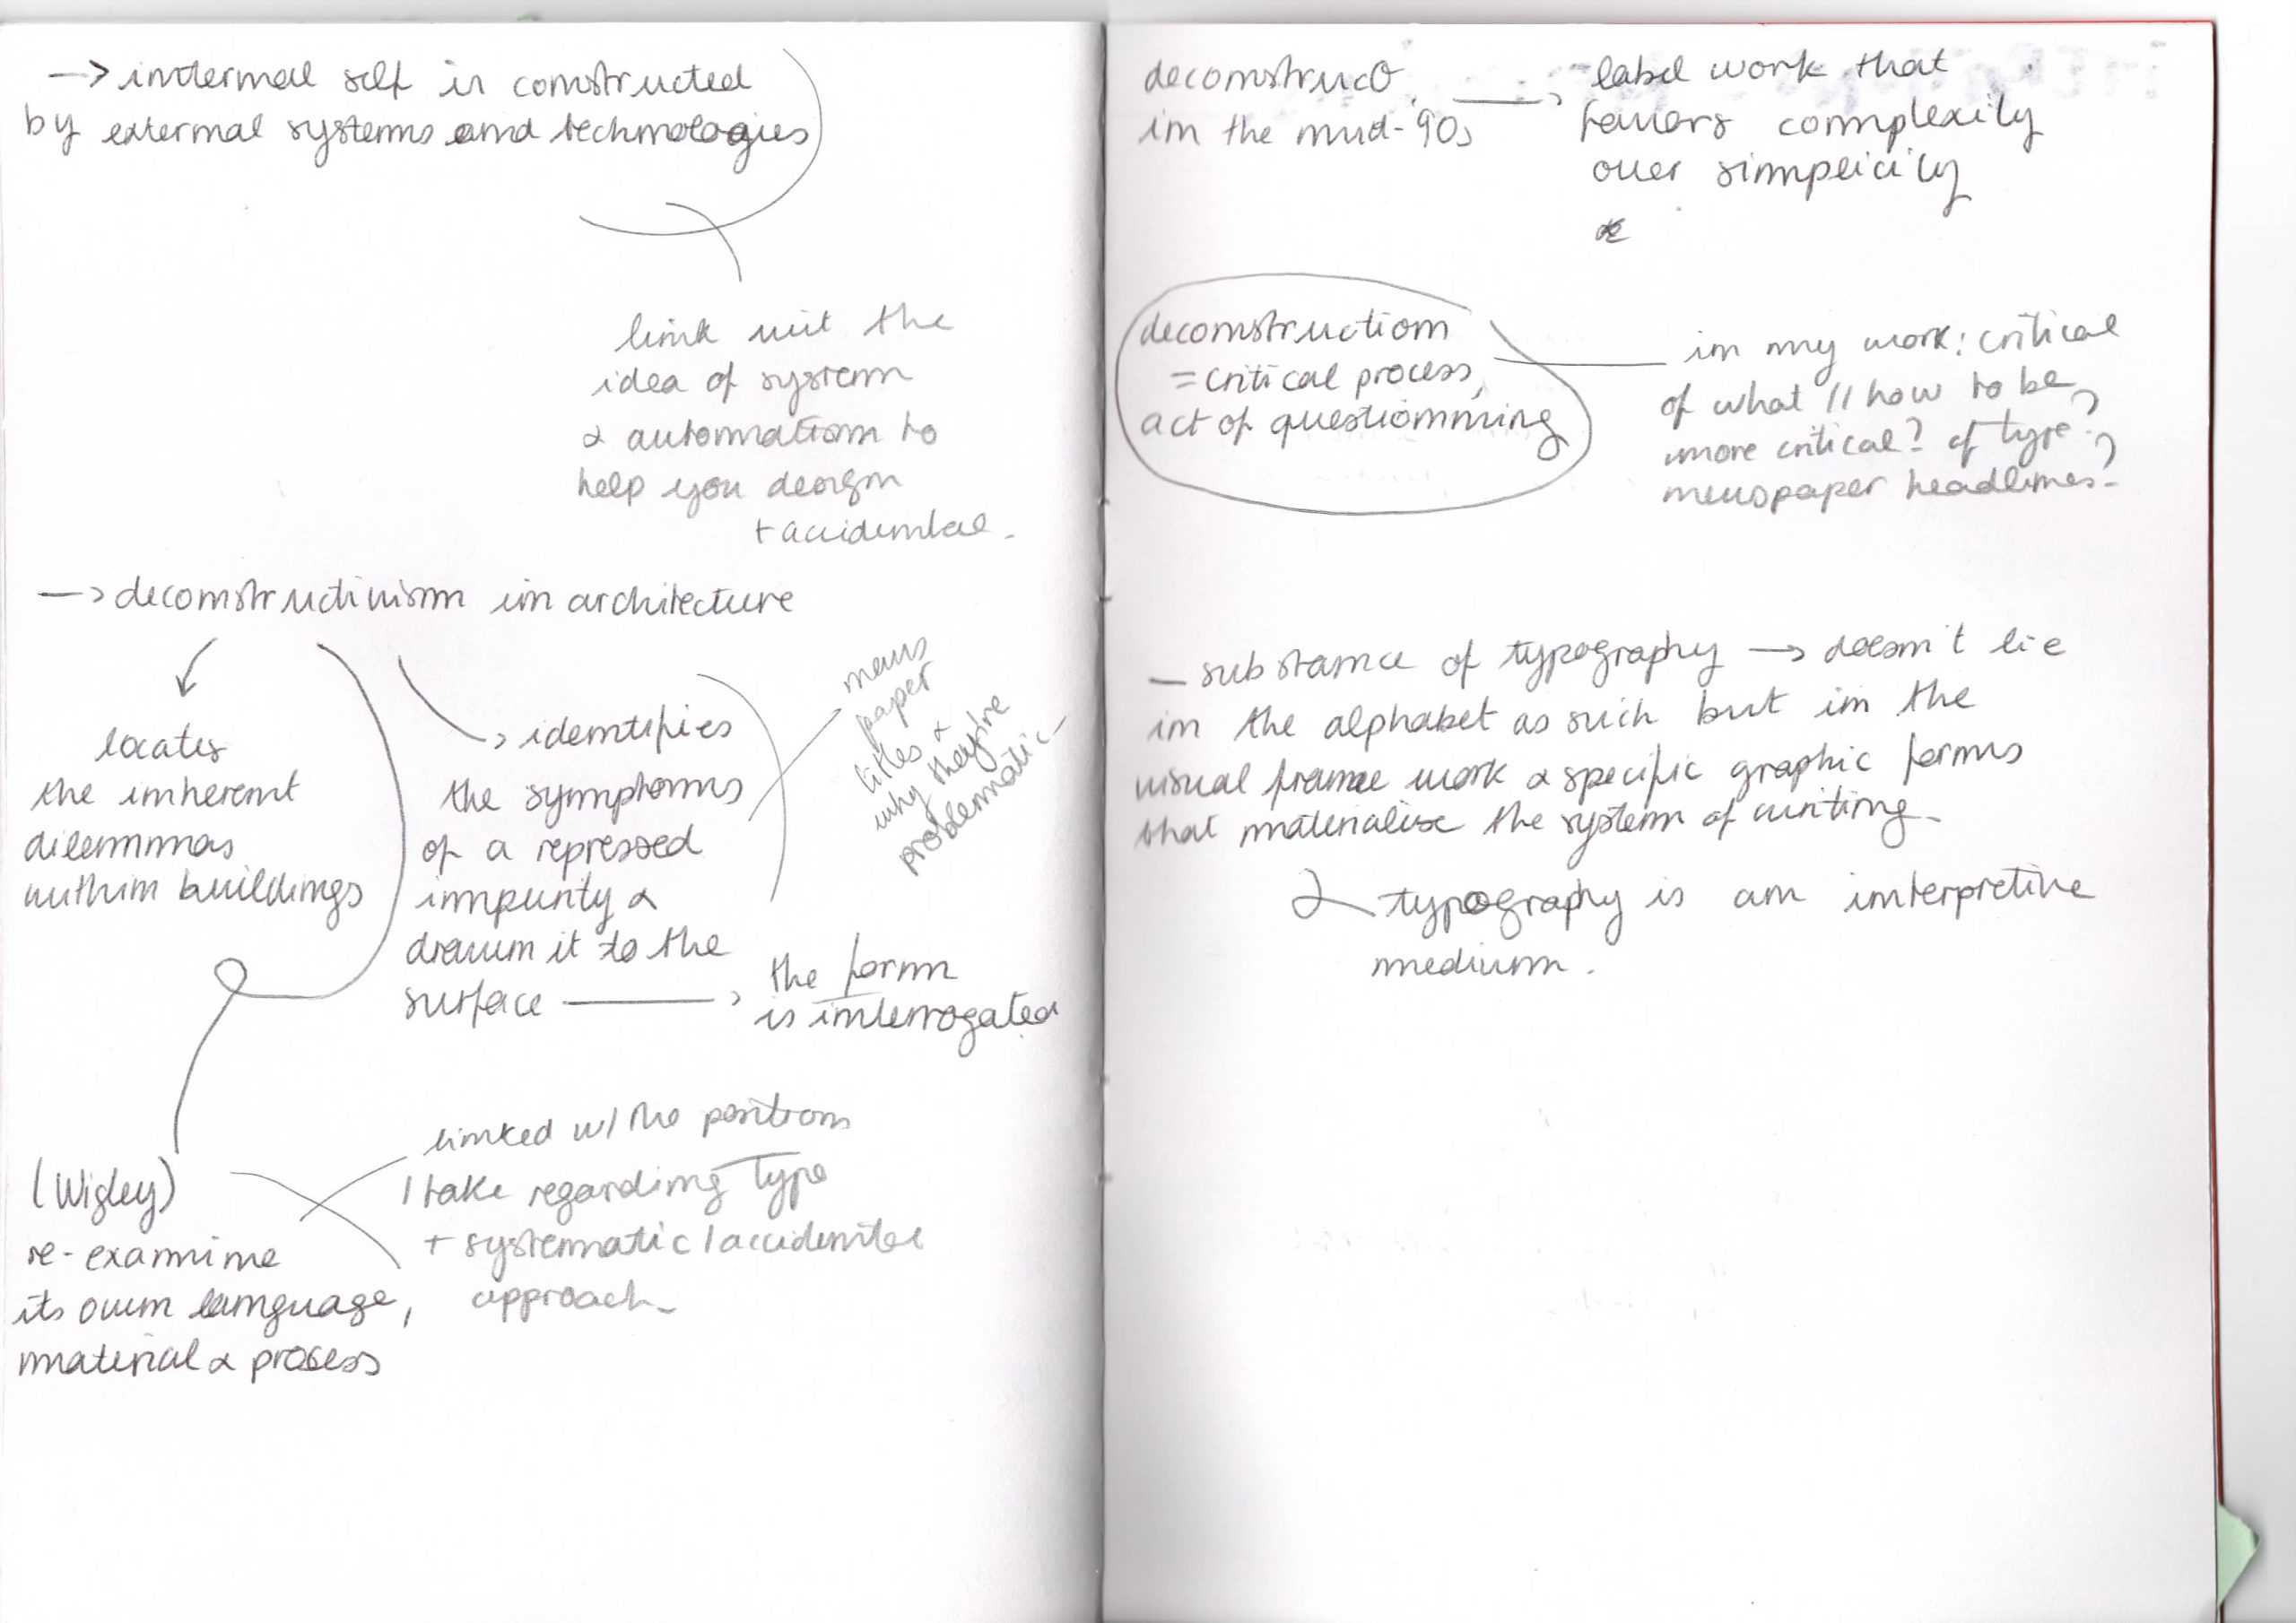 → internal self is constructed
by external systems and technologies
link wit the
idea of system
& automation to
help you design
+ accidental.
→ deconstructivism in architecture
locates
the inherent
dilemmas
within buildings
→ identifies
the symptoms
of a repressed
impurity &
drawn it to the
surface → the form
is interrogated
news
paper
titles &
why they're
problematic
(Wigley)
re-examine
its own language,
material & process
linked w/ the positions
I take regarding type
+ systematic/accidental
approach.
deconstruct°
in the mid-'90s → label work that
favors complexity
over simplicity
deconstruction
= critical process,
act of questionning
in my work: critical
of what // how to be
more critical? of type?
newspaper headlines?
— substance of typography → doesn't lie
in the alphabet as such but in the
visual frame work & specific graphic forms
that materialise the system of writing.
typography is an interpretive
medium.